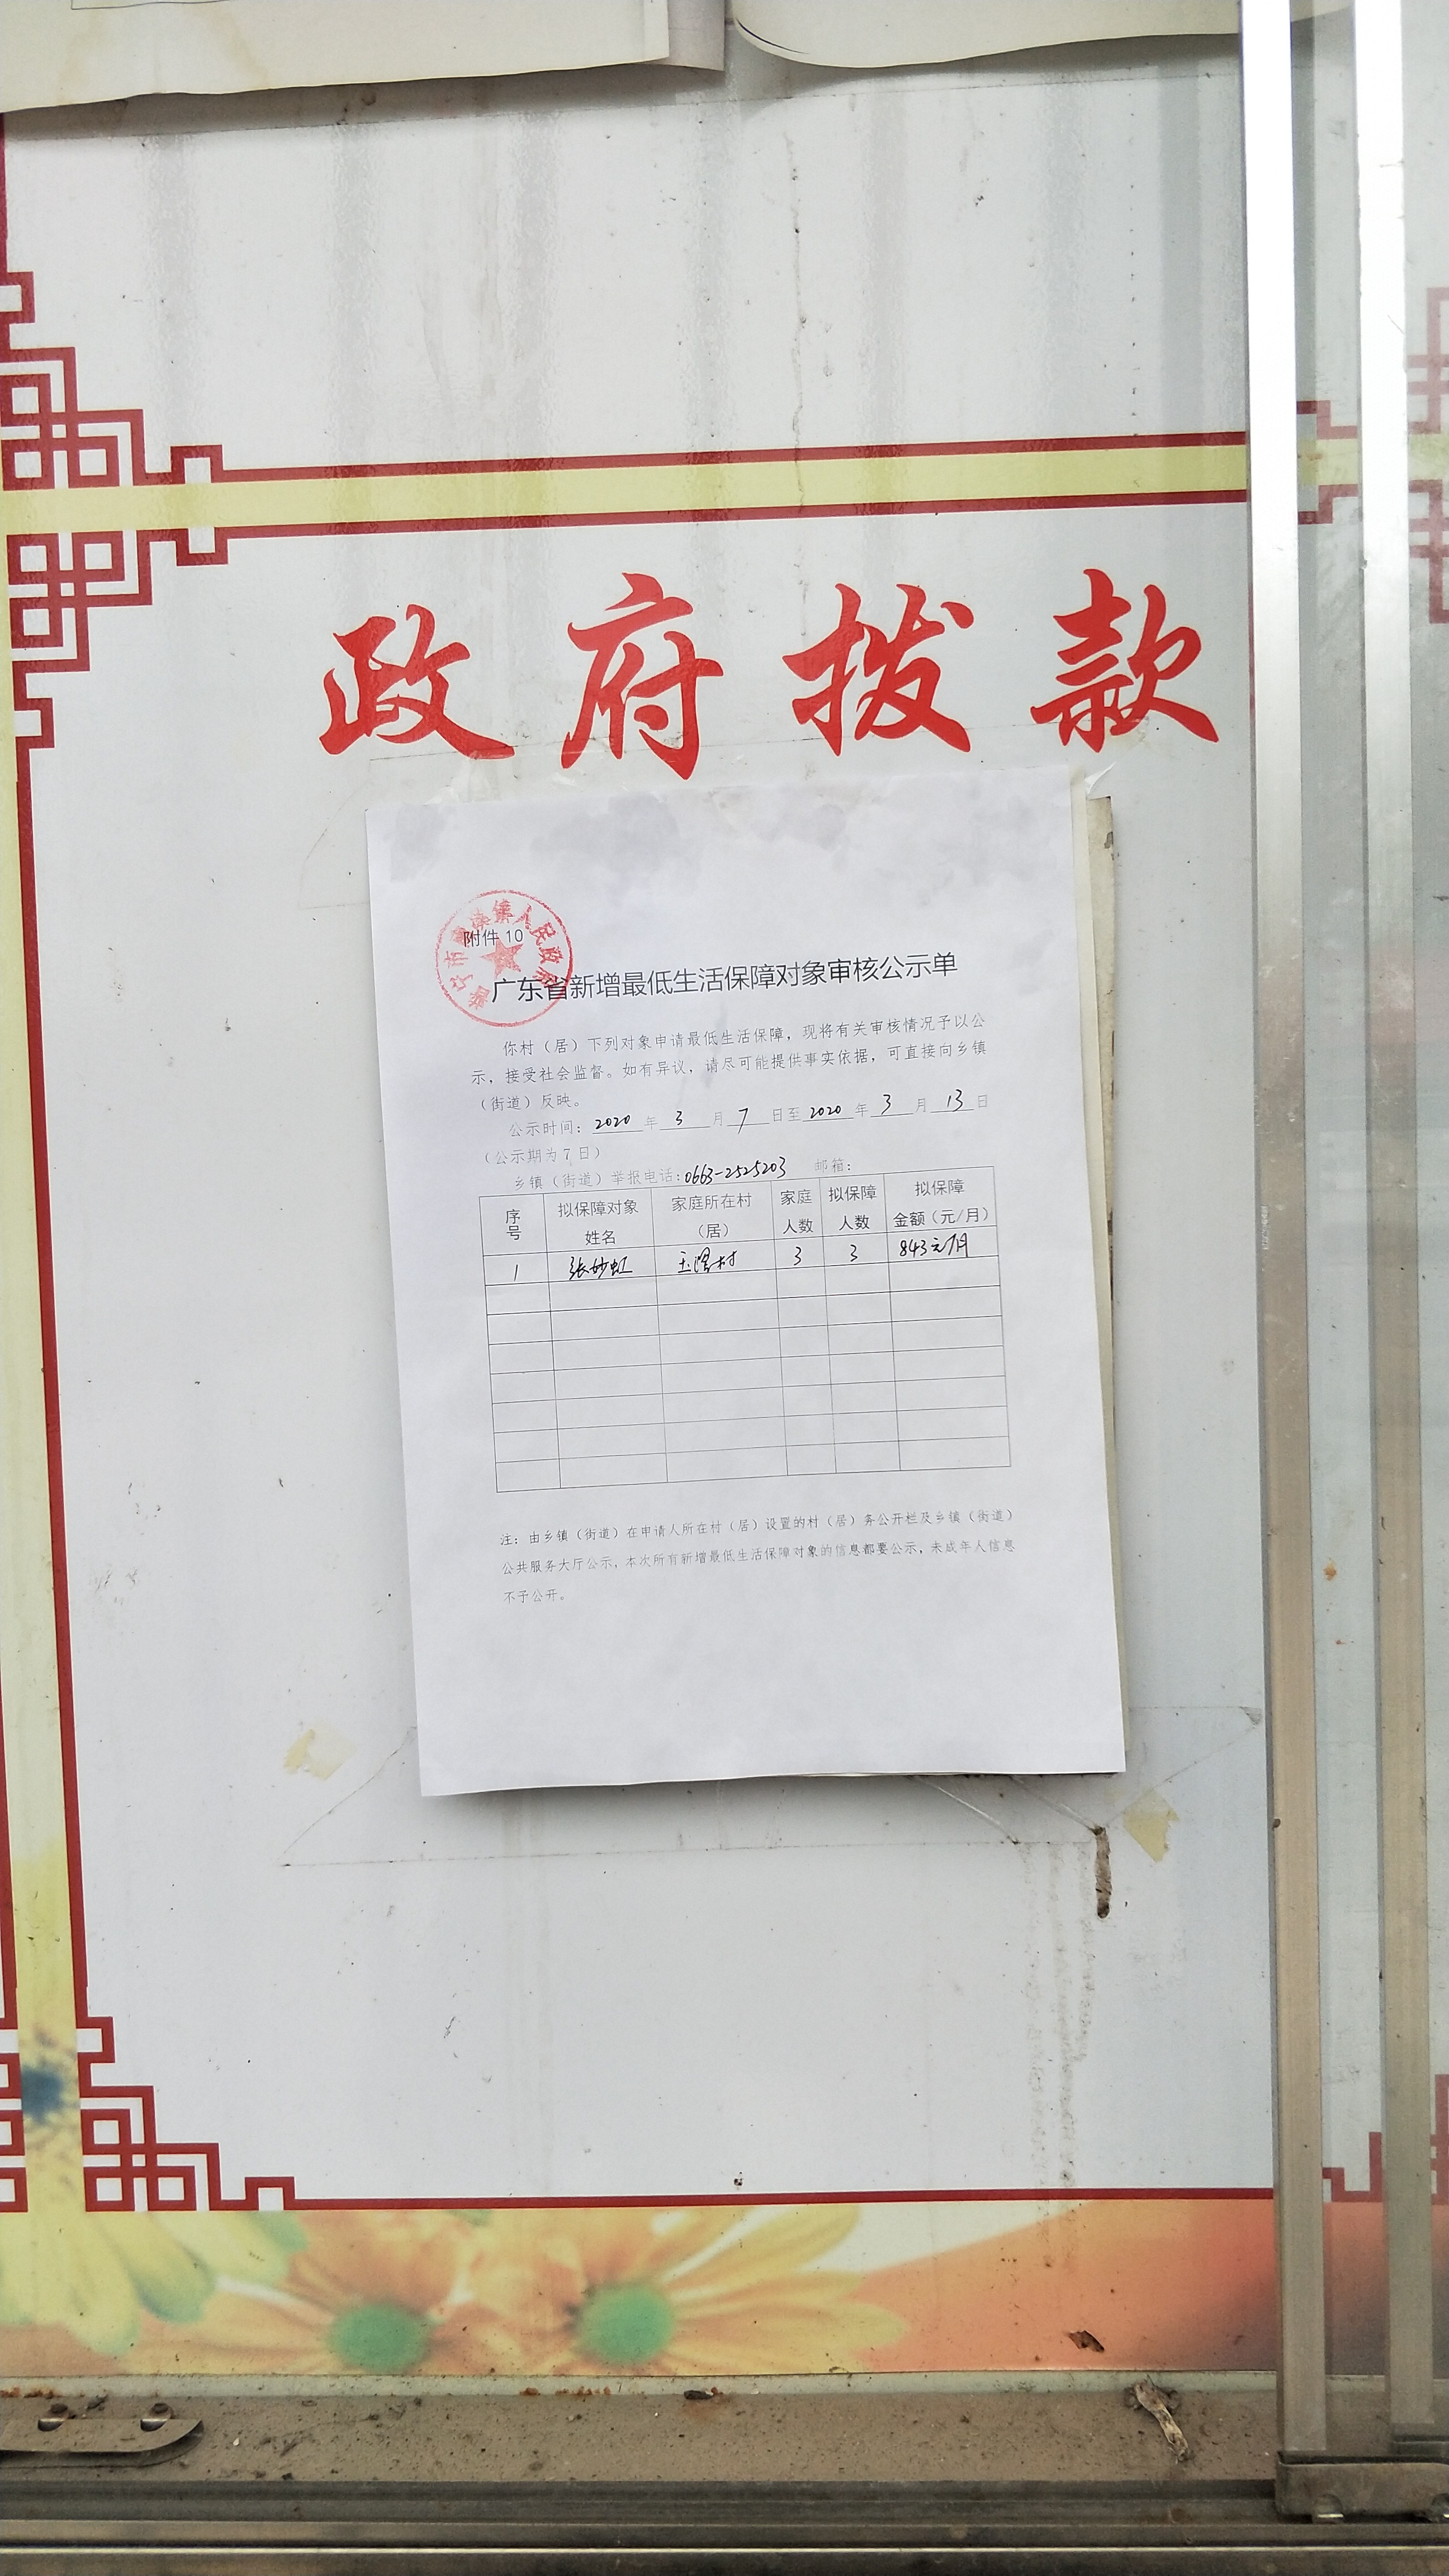 政府拨款
附件 10
广东省新增最低生活保障对象审核公示单
你村（居）下列对象申请最低生活保障，现将有关审核情况予以公
示，接受社会监督。如有异议，请尽可能提供事实依据，可直接向乡镇
（街道）反映。
公示时间：2020 年 3 月 7 日至 2020 年 3 月 13 日
（公示期为 7 日）
乡镇（街道）举报电话：0663-2525203 邮箱：
序号 拟保障对象姓名 家庭所在村（居） 家庭人数 拟保障人数 拟保障金额（元/月）
1 张妙虹 3 3 843元/月
注：由乡镇（街道）在申请人所在村（居）设置的村（居）务公开栏及乡镇（街道）
公共服务大厅公示，本次所有新增最低生活保障对象的信息都要公示，未成年人信息
不予公开。